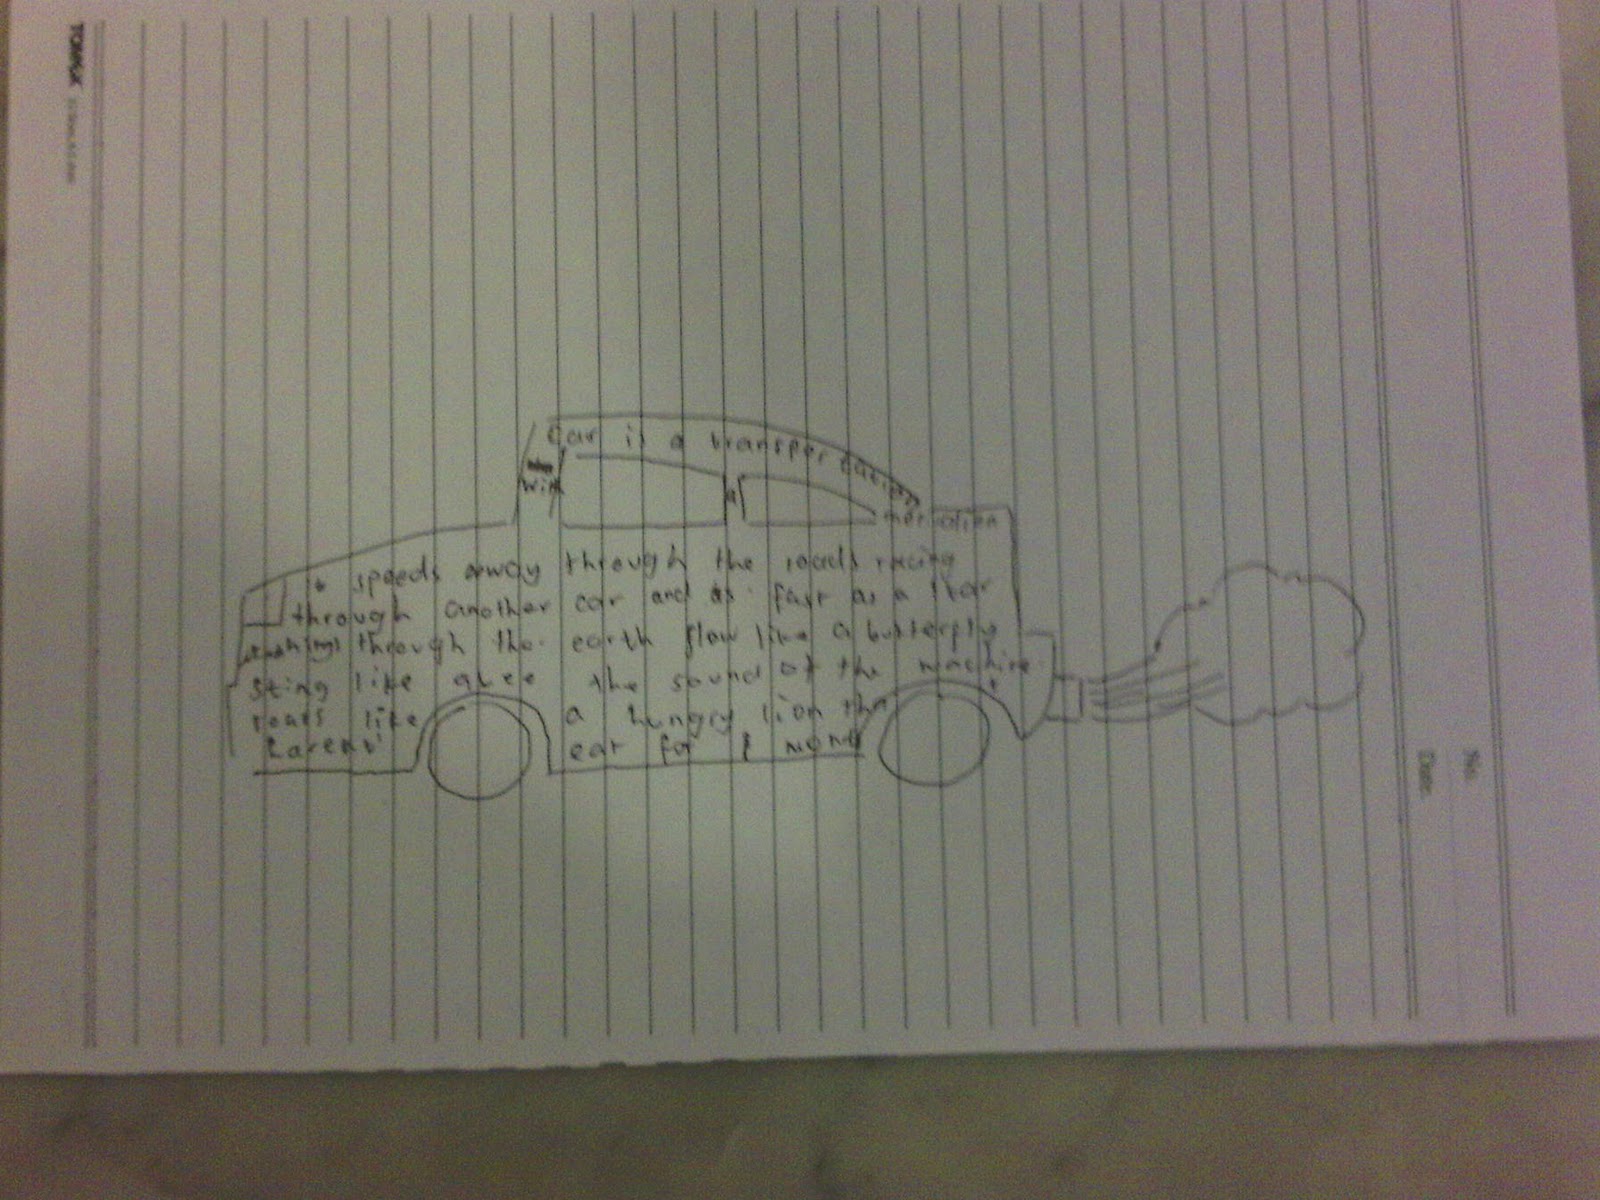 Car is a transportation
with a
it speeds away through the roads racing
through another car and as fast as a star
through the earth flow like a butterfly
sting like a bee the sound of the machine
roars like a hungry lion
eat for 1 month
TOMSK
No.
Date.